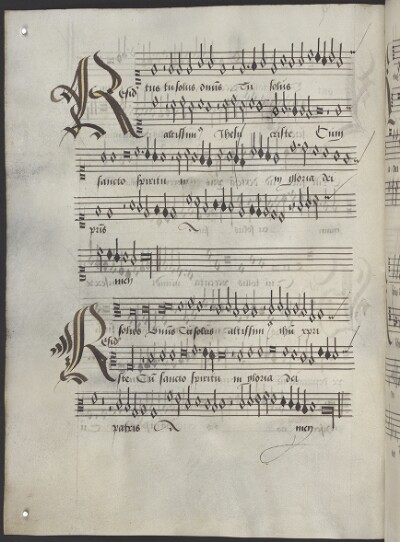 Resid
tus tu solus dn̄us Tu solus
altissim9 Ihesu criste Cum
sancto spiritu in in gloria dei
pr̄is A
men
Resid
solus dn̄us Tu solus altissim9 ihū xp̄i
ste Cū sancto spiritu in gloria dei
patris A men